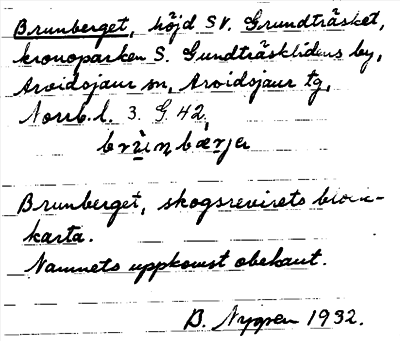 Brunberget, höjd SV. Grundträsket,
kronoparken S. Gundträsklidens by,
Arvidsjaur sn, Arvidsjaur tg,
Norrb. l. 3. G. 42.
Brunberget, skogsrevirets
karta.
Namnets uppkomst obekant.
B. Nygren 1932.